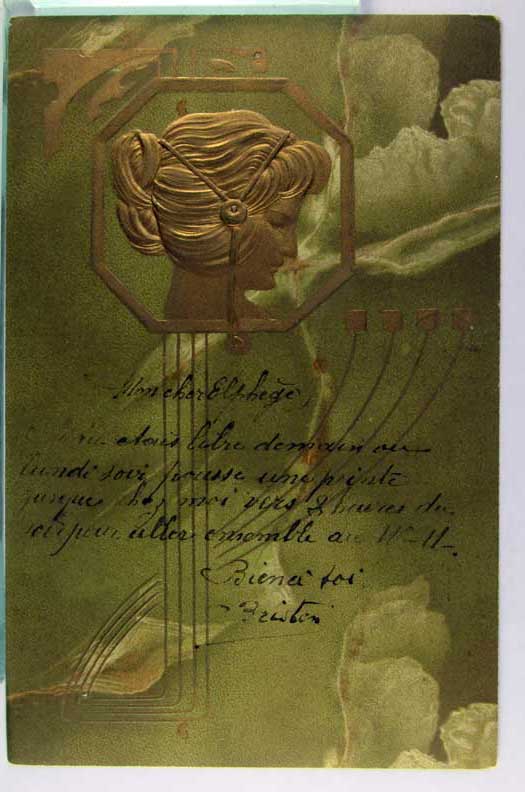 Mon cher Elphège,
Si tu étais libre demain ou
lundi soir, pousse une pointe
jusque chez moi vers 8 heures du
soir pour aller ensemble au W-H-.
Bien à toi